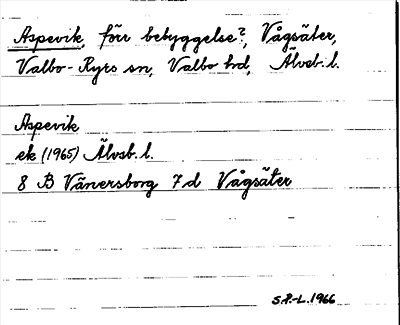 Aspevik, förr bebyggelse?, Vågsäter,
Valbo-Ryrs sn, Valbo hd, Älvsb. l.
Aspevik
ek (1965) Älvsb. l.
8 B Vänersborg 7 d Vågsäter
S.P.-L. 1966